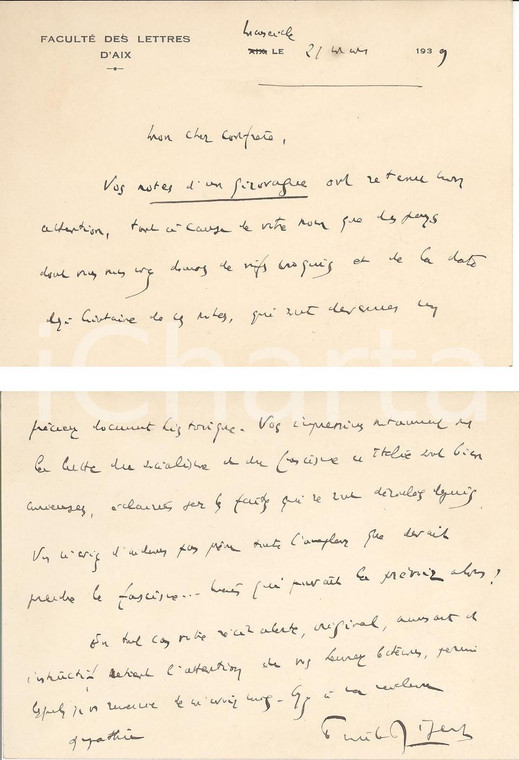 FACULTÉ DES LETTRES
D'AIX
Marseille
AIX LE 21 mars 1939
Mon cher confrère,
Vos notes d'un Girovague ont retenu mon
attention, tant à cause de votre nom que des pays
dont vous nous avez donné de vifs croquis et de la date
déjà lointaine de ces notes, qui sont devenues un
iCharta
précieux document historique. Vos impressions notamment sur
la lutte du socialisme et du fascisme en Italie sont bien
curieuses, éclairées par les faits qui se sont déroulés depuis.
Vous n'aviez d'ailleurs pas prévu toute l'ampleur que devait
prendre le fascisme... mais qui pouvait la prévoir alors?
En tout cas votre récit alerte, original, amusant et
instructif retient l'attention de vos heureux lecteurs, parmi
lesquels je vous remercie de m'avoir mis.
sympathie